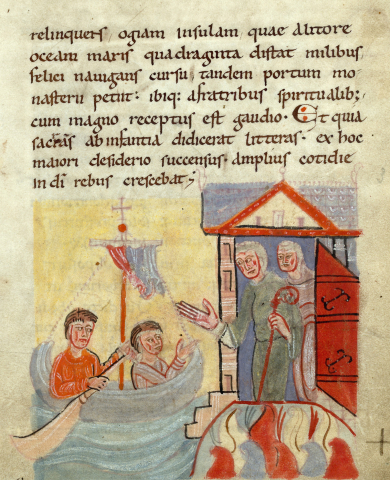 relinquens ogiam insulam quae alitore
oceani maris quadraginta distat milibus
felici nauigans cursu, tandem portum mo
nasterii petiit· ibiq: afratribus spiritualib;
cum magno receptus est gaudio· Et quia
sacras abinfantia didicerat litteras· ex hoc
maiori desiderio succensus· amplius cotidie
in di rebus crescebat;